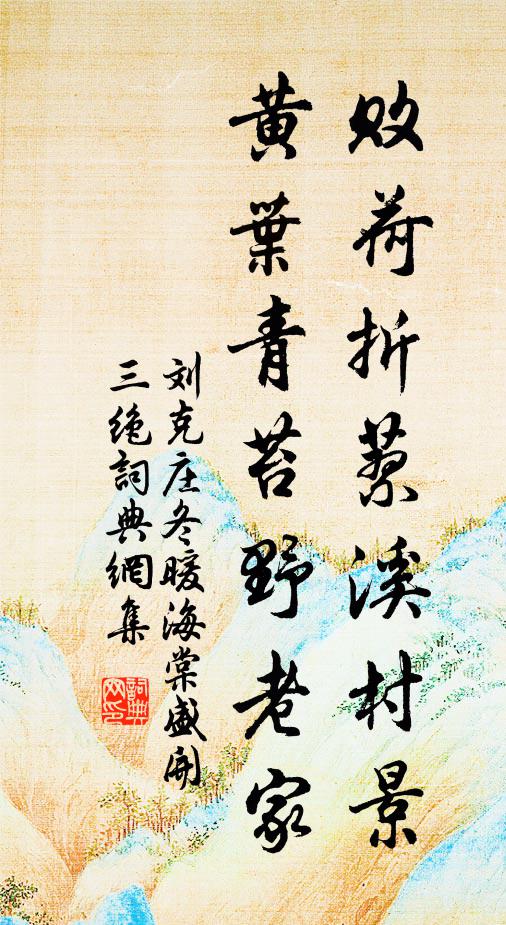 败荷折苇溪村景
黄葉青苔野老家
刘克庄冬暖海棠盛開
三绝詞典網集
詞典網印